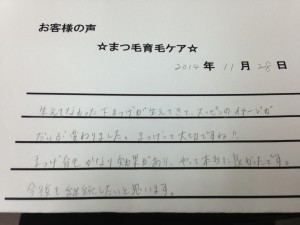 お客様の声
☆まつ毛育毛ケア☆
2014年11月28日
生えてなかった下まつげが生えてきて、スッピンのイメージが
だいぶ変わりました。まつげって大切ですね!!
まつげ育毛かなり効果があり、やって本当に良かったです。
今後も継続したいと思います。